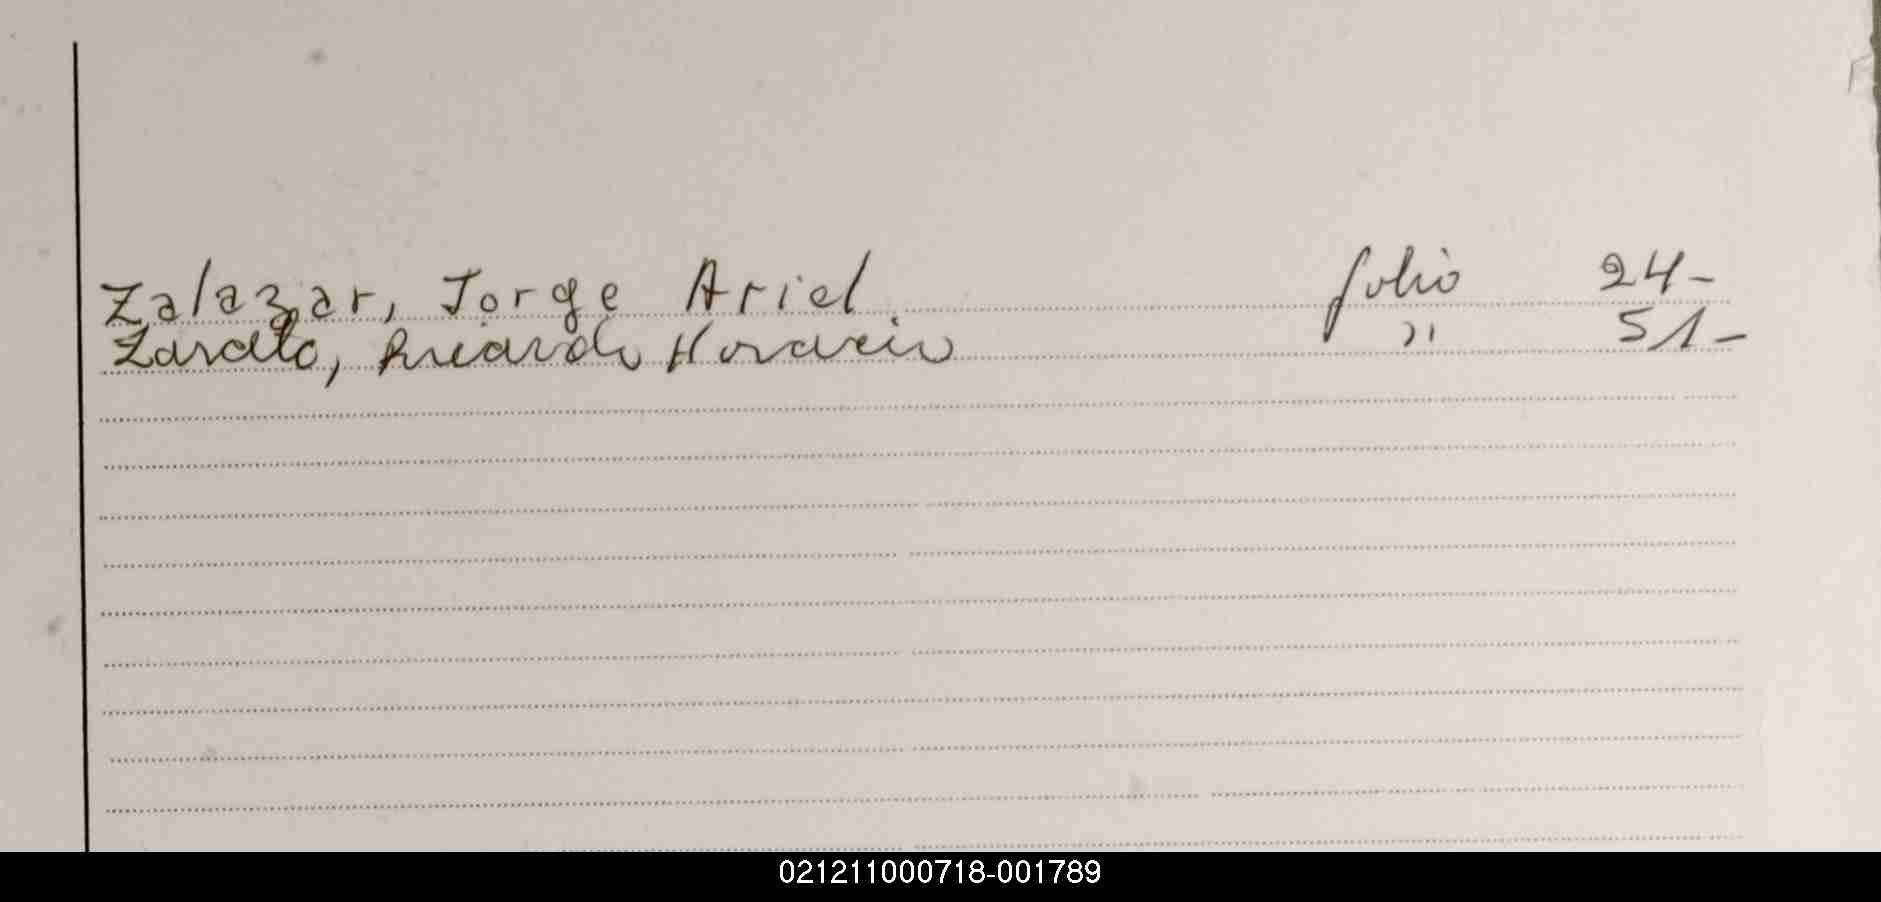 Zalazar, Jorge Ariel folio 24-
Zarate, Ricardo Horacio " 51-
021211000718-001789